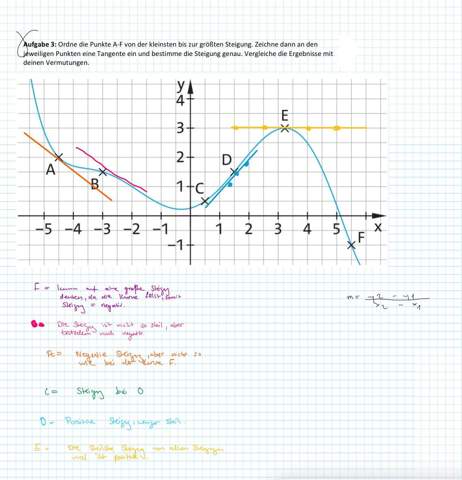 Aufgabe 3: Ordne die Punkte A-F von der kleinsten bis zur größten Steigung. Zeichne dann an den
jeweiligen Punkten eine Tangente ein und bestimme die Steigung genau. Vergleiche die Ergebnisse mit
deinen Vermutungen.
y
4
3
2
1
-1
-5 -4 -3 -2 -1 1 2 3 4 5 x
A
B
C
D
E
F
F = kann auf eine große Steigung
deuten, da die Kurve fällt, somit
Steigung = negativ.
m = y2 - y1
x2 - x1
B = Die Steigung ist nicht so steil, aber
trotzdem noch negativ.
A = Negative Steigung, aber nicht so
wie bei der Kurve F.
C = Steigung bei 0
D = Positive Steigung, weniger steil.
E = Die Steigung von allen Steigungen
und ist positiv.